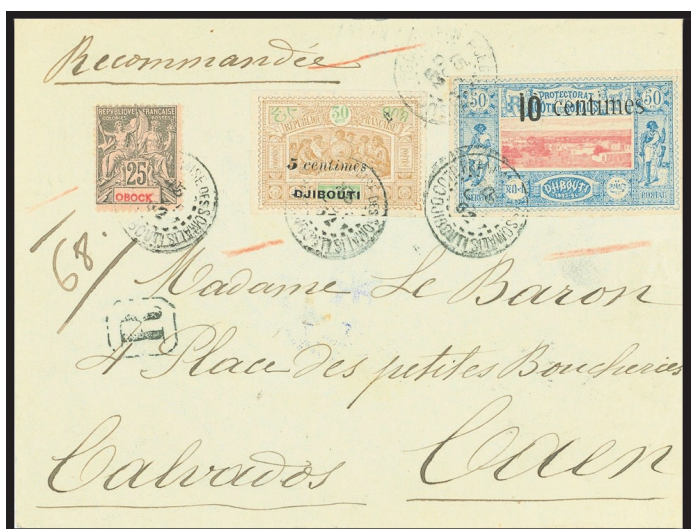 Recommandée
REPUBLIQUE FRANÇAISE
COLONIES POSTES
25
OBOCK
50
5 centimes
DJIBOUTI
50 PROTECTORAT 50
10 centimes
DJIBOUTI
POSTAL
68.
R
Madame Le Baron
4 Place des petites Boucheries
Calvados Caen